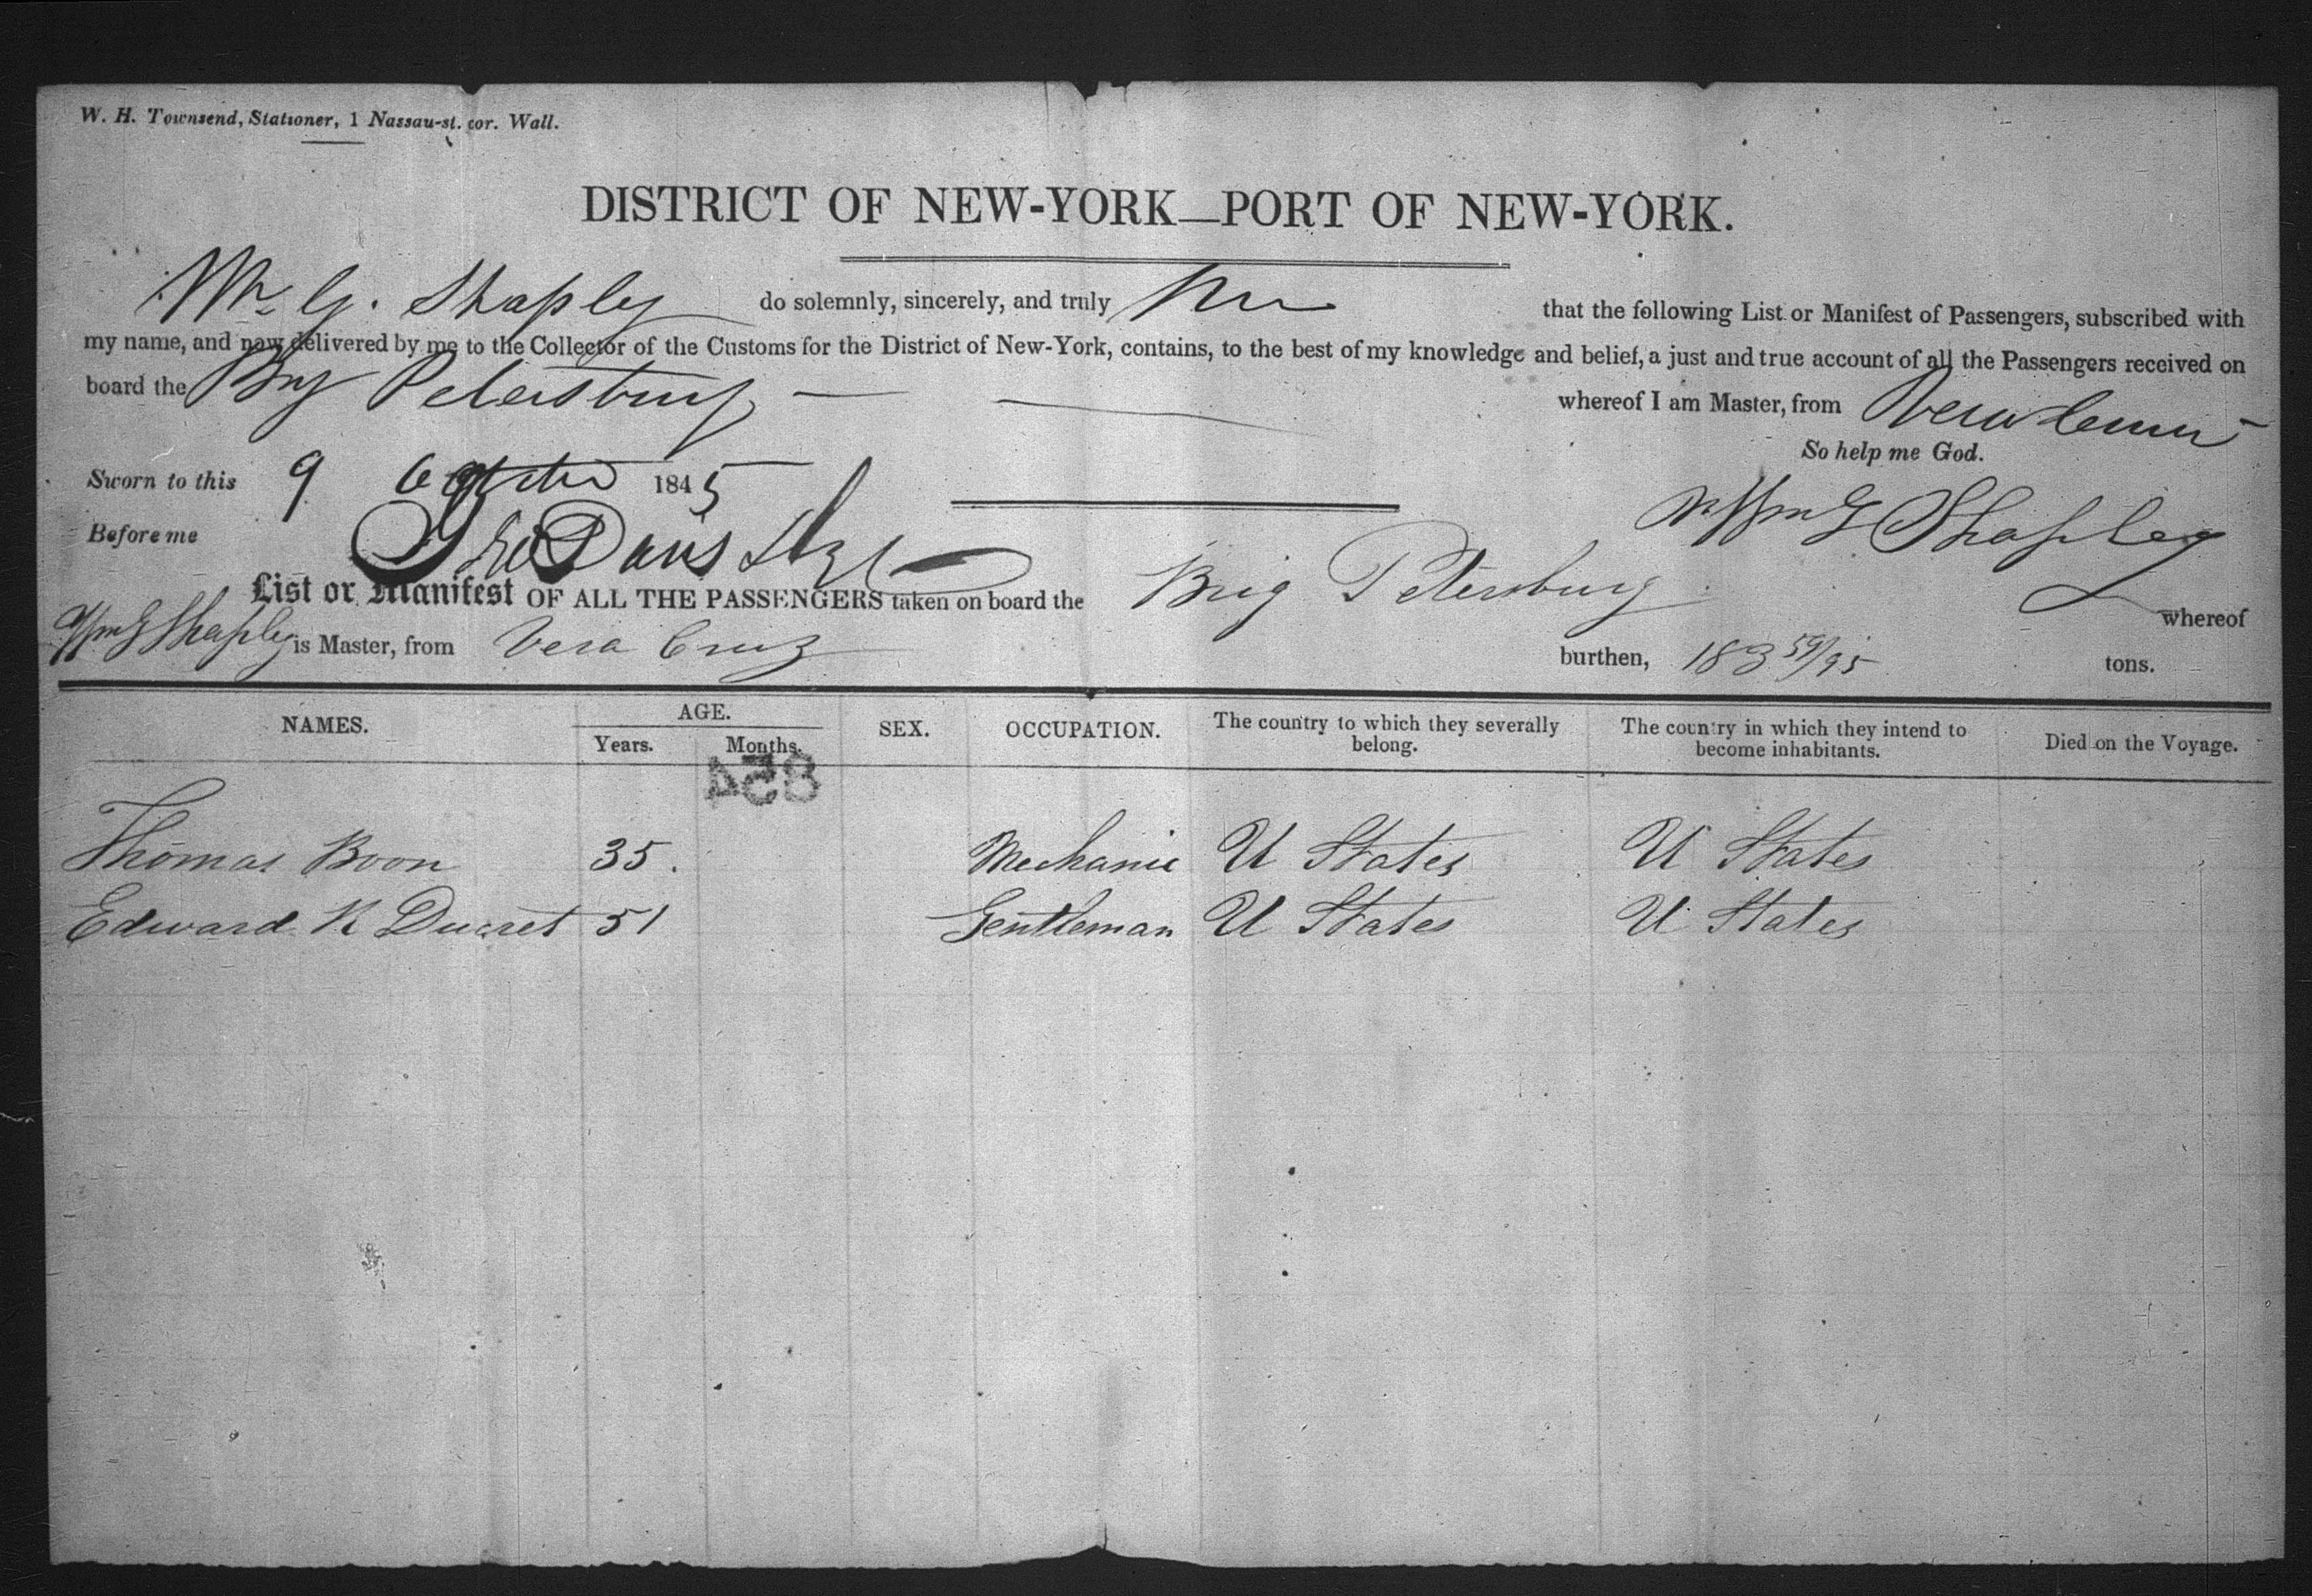 W. H. Townsend, Stationer, 1 Nassau-st. cor. Wall.
DISTRICT OF NEW-YORK—PORT OF NEW-YORK.
Wm G. Shapley do solemnly, sincerely, and truly that the following List or Manifest of Passengers, subscribed with
my name, and now delivered by me to the Collector of the Customs for the District of New-York, contains, to the best of my knowledge and belief, a just and true account of all the Passengers received on
board the Brig Petersburg whereof I am Master, from Vera Cruz
So help me God.
Sworn to this 9 1845
Wm G Shapley
Before me
List or Manifest OF ALL THE PASSENGERS taken on board the Brig Petersburg whereof
Wm G Shapley is Master, from Vera Cruz burthen, 183 59/95 tons.
NAMES. AGE. SEX. OCCUPATION. The country to which they severally belong. The country in which they intend to become inhabitants. Died on the Voyage.
Years. Months.
854
Thomas Boon 35. Mechanic U States U States
Edward K Ducret 51 Gentleman U States U States